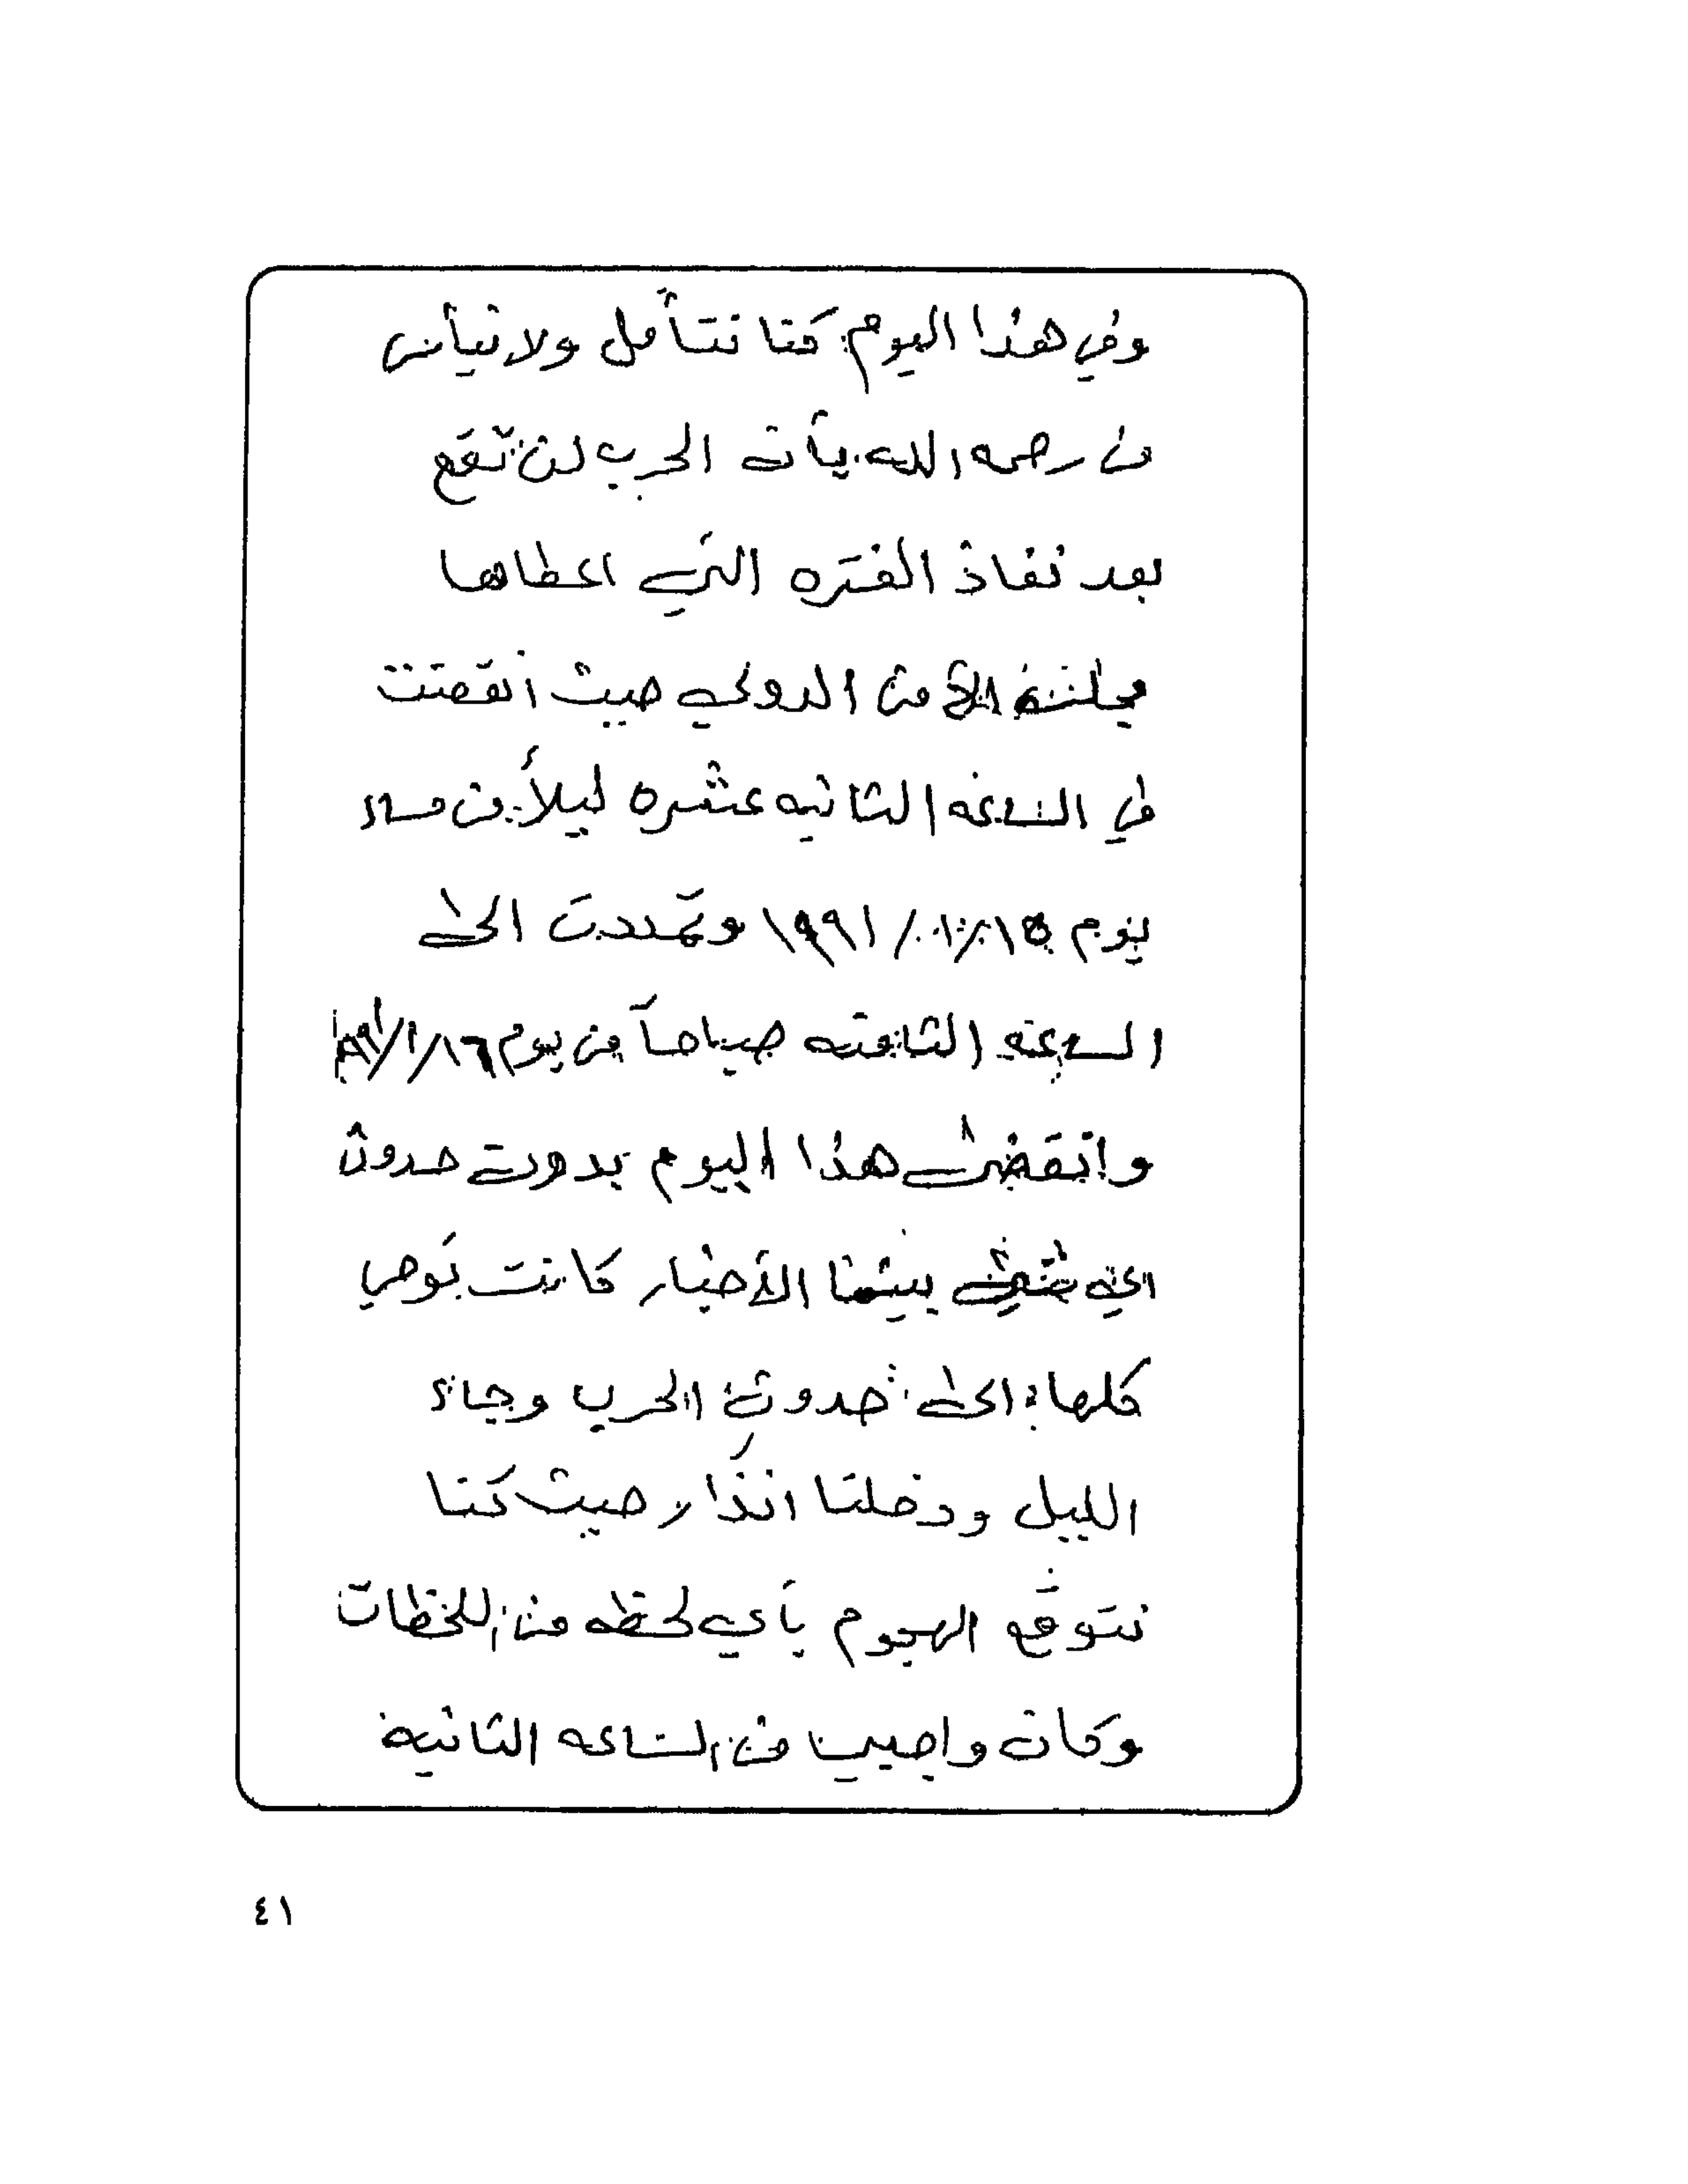 وفي هذا اليوم كنا نتأمل ولا نيأس
من رحمه الله بأن الحرب لن تقع
بعد نفاذ الفتره التي اعطاها
مجلس الأمن الدولي حيث انقضت
في الساعه الثانيه عشره ليلاً من مساء
يوم ١٥/٠١/١٩٩١ وتمددت الى
الساعه الثامنه صباحاً من يوم ١٦/١/٩١
وانقضى هذا اليوم بدون حدوث
اي شيء بينما الأخبار كانت توحي
كلها الى حدوث الحرب وجاء
الليل ودخلنا انذار حيث كنا
نتوقع الهجوم بأي لحظه من اللحظات
وكان واجبي من الساعه الثانيه
٤١